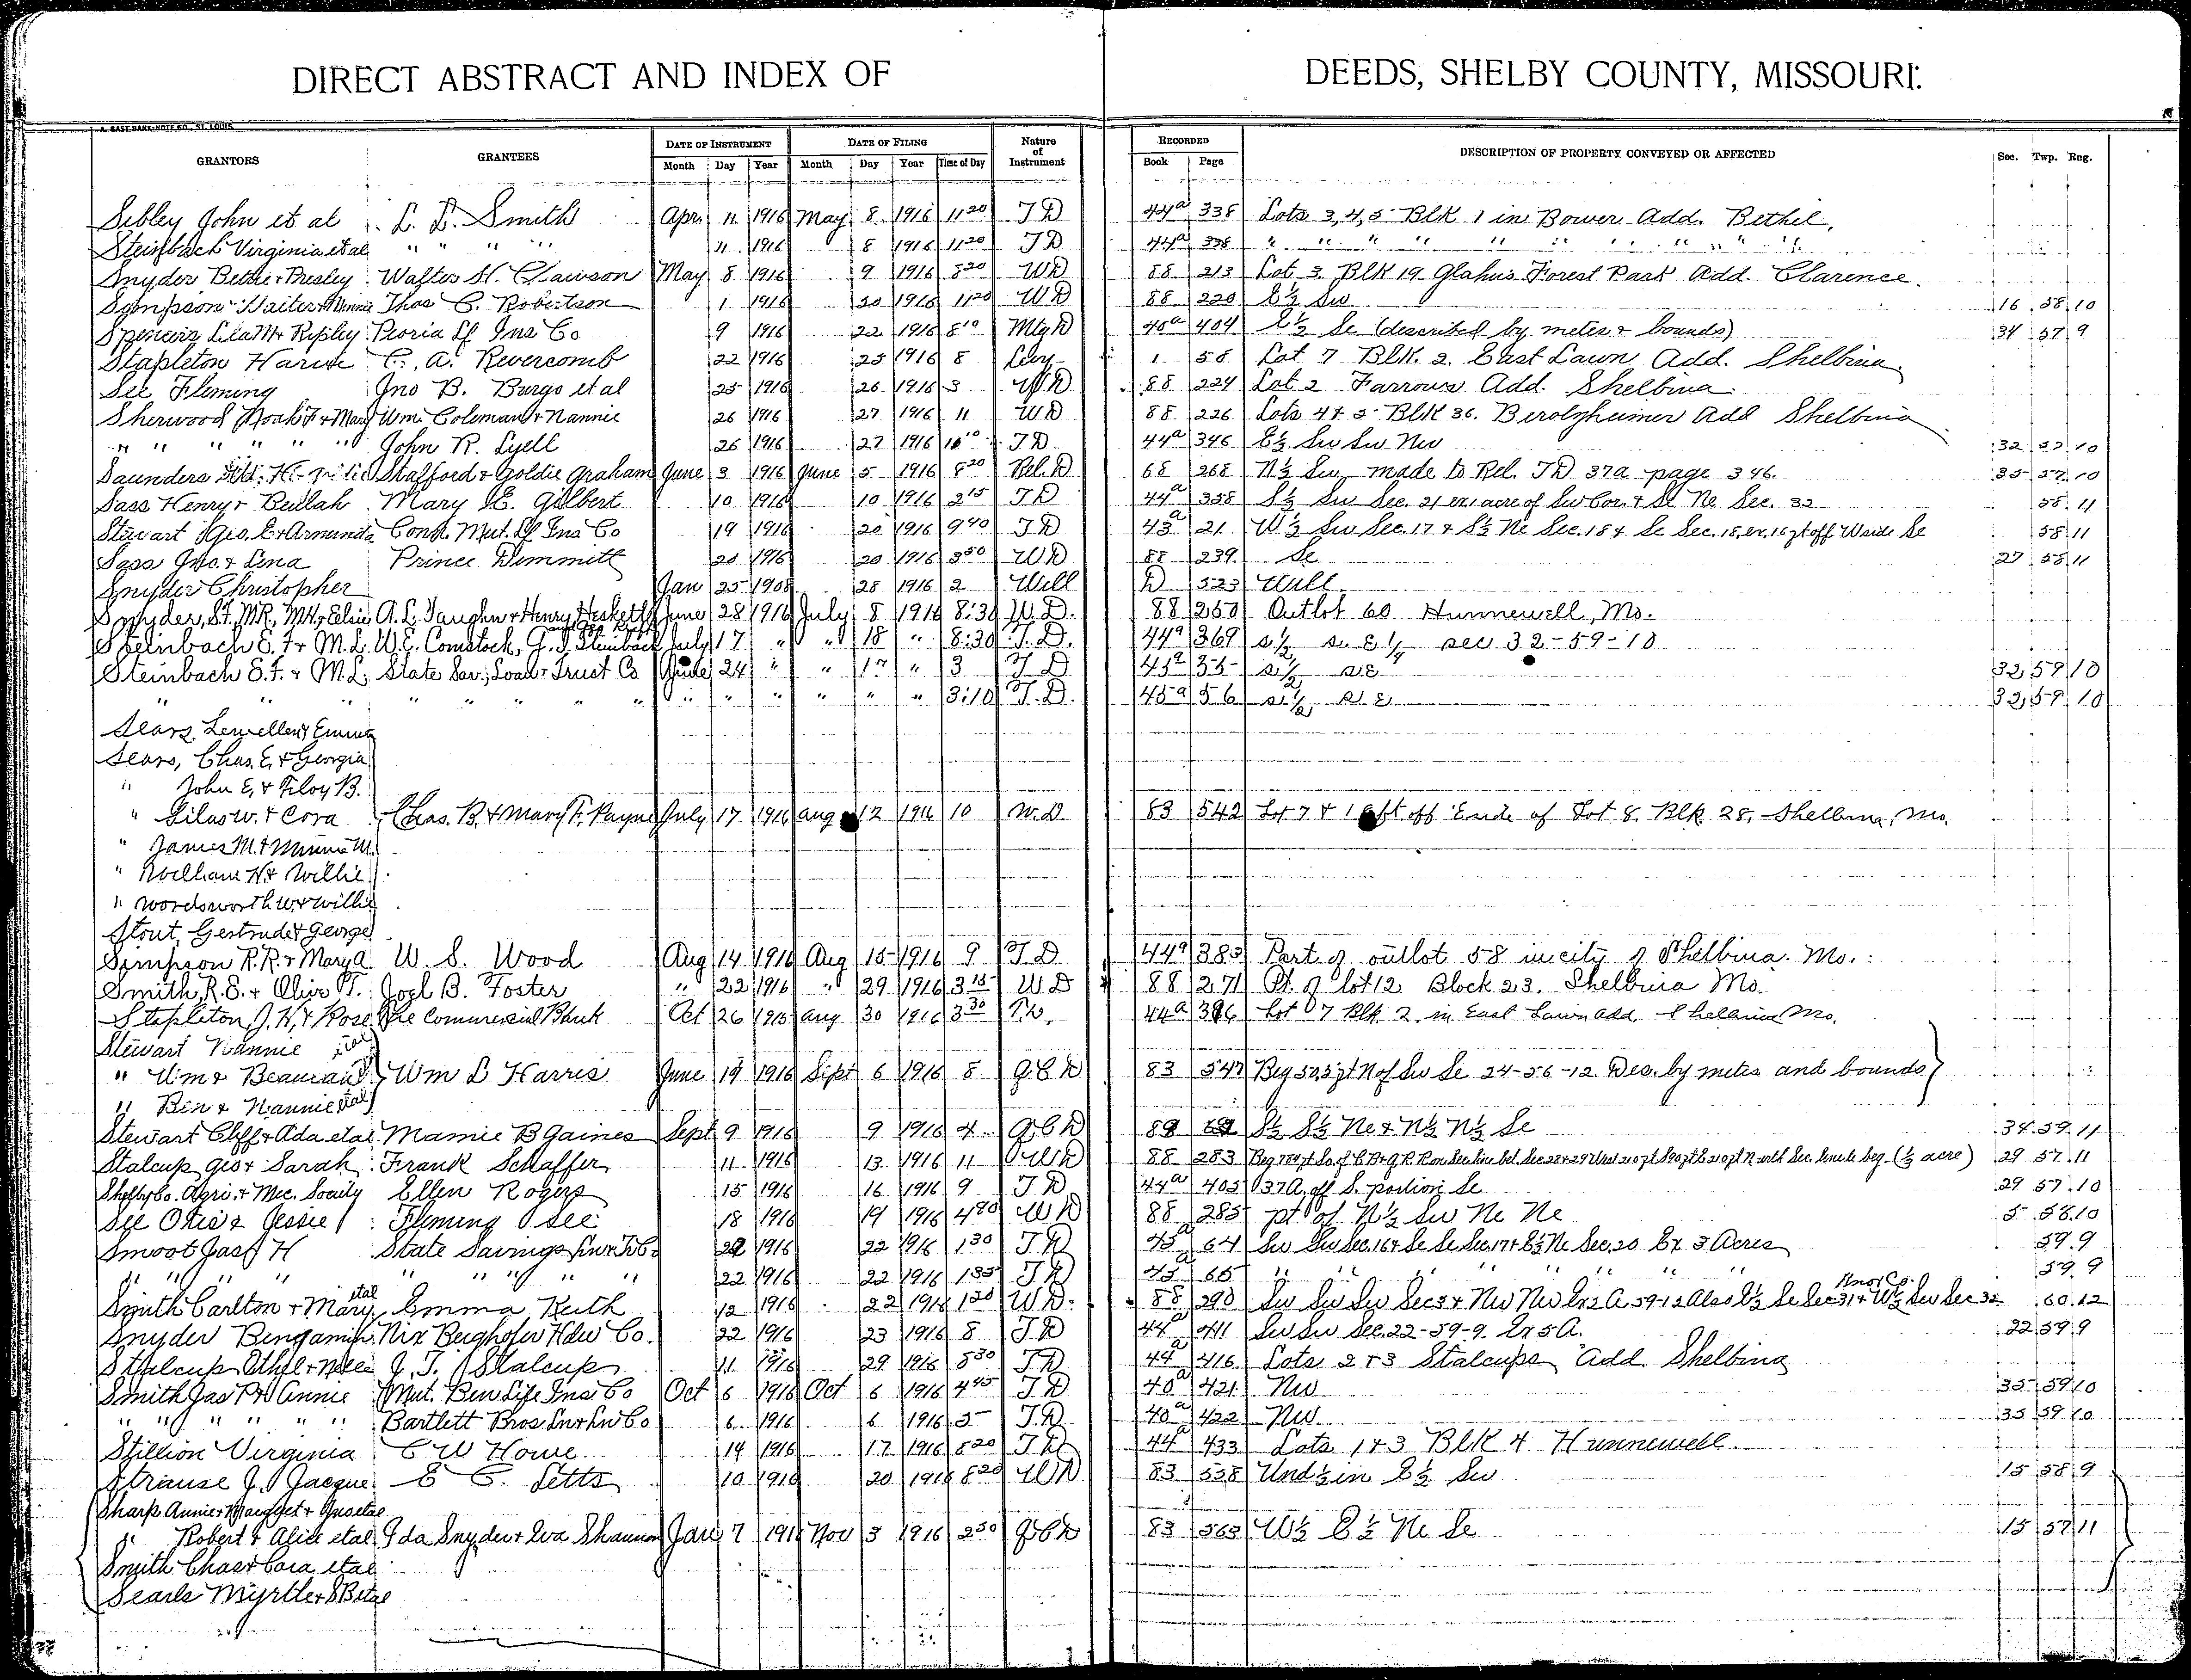 DIRECT ABSTRACT AND INDEX OF DEEDS, SHELBY COUNTY, MISSOURI.
GRANTORS GRANTEES DATE OF INSTRUMENT DATE OF FILING Nature of Instrument RECORDED DESCRIPTION OF PROPERTY CONVEYED OR AFFECTED Sec. Twp. Rng.
Month Day Year Month Day Year Time of Day Book Page
Sibley John et al L. L. Smith Apr. 11 1916 May 8 1916 11 20 T D 44a 338 Lots 3, 4, 5 Blk 1 in Bower Add. Bethel.
Steinbach Virginia et al " " " " 11 1916 8 1916 11 20 T D 44a 338 " " " " " " " "
Snyder Bettie & Presley Walter H. Clawson May 8 1916 9 1916 8 20 WD 88 213 Lot 3 Blk 19 Glahns Forest Park Add Clarence.
Simpson Walter & Minnie Thos C. Robertson 1 1916 20 1916 11 20 WD 88 220 E½ Sw 16 58 10
Spencer Lila M & Ripley Peoria Lf Ins Co 9 1916 22 1916 8 10 Mtg D 40a 404 E½ Se (described by metes & bounds) 34 57 9
Stapleton C. A. Revercomb 22 1916 23 1916 8 Levy 1 58 Lot 7 Blk. 2. East Lawn Add. Shelbina
See Fleming Jno B. Burgo et al 25 1916 26 1916 3 WD 88 224 Lot 2 Farrows Add. Shelbina.
Sherwood Noah F & Mary Wm. Coleman & Nannie 26 1916 27 1916 11 WD 88 226 Lots 4 & 5 Blk 36. Berolzheimer Add Shelbina
" " " " " John R. Lyell 26 1916 27 1916 T D 44a 346 E½ Sw Sw Nw 32 10
Saunders Stafford & Goldie Graham June 3 1916 June 5 1916 8 20 Rel. D 68 268 N½ Sw, made to Rel. TD 37a page 346. 35 57 10
Sass Henry & Beulah Mary E. Gilbert 10 1916 10 1916 2 15 T D 44a 358 S½ Sw Sec. 21 ex 1 acre of Sw Cor. & Se Ne Sec. 32 58 11
Stewart Geo. E & Armunda Conn. Mut. Lf Ins Co 19 1916 20 1916 9 40 T D 43a 21 W½ Sw Sec. 17 & S½ Ne Sec. 18 & Se Sec. 18, ex. 16 ft off W side Se 58 11
Sass Jno. & Lena Prince Dimmitt 20 1916 20 1916 3 50 WD 88 239 Se 27 58 11
Snyder Christopher Jan 25 1908 28 1916 2 Will D 523 Will
Snyder, S.F., M.R., M.H. & Elsie A. L. Vaughn & Henry Hesketh June 28 1916 July 8 1916 8:30 W.D. 88 250 Outlot 60 Hunnewell, Mo.
Steinbach S. F. & M. L. W. E. Comstock, G. J. Steinbach July 17 " " 18 " 8:30 T. D. 44a 369 S½ S. E ¼ sec 32-59-10
Steinbach S. F. & M. L. State Sav., Loan & Trust Co June 24 " " 17 " 3 T D 45a 35 S½ SE 32 59 10
" " " " " " " " " " " " 3:10 T. D. 45a 56 S½ S. E. 32 59 10
Sears, Lewellen & Emma
Sears, Chas. E. & Georgia
" John E. & Floy B.
" Silas W. & Cora Chas. B. & Mary F. Payne July 17 1916 Aug 12 1916 10 W. D. 83 542 Lot 7 & 16 ft off E side of Lot 8. Blk. 28, Shelbina, Mo.
" James M. & Minnie M.
" William H & Willie
" Wordsworth W. & Willie
Stout, Gertrude & George
Simpson R. R. & Mary A. W. S. Wood Aug 14 1916 Aug 15 1916 9 T D 44a 383 Part of outlot 58 in city of Shelbina. Mo.
Smith, R. S. & Olive T. Joel B. Foster " 22 1916 " 29 1916 3 15 W D 88 271 Pt. of lot 12 Block 23. Shelbina Mo.
Stapleton, J. H. & Rose The Commercial Bank Oct 26 1915 Aug 30 1916 3 30 T D. 44a 396 Lot 7 Blk 2 in East Lawn Add Shelbina Mo.
Stewart Nannie et al
" Wm & Wm L Harris June 19 1916 Sept 6 1916 8 Q.C.D 83 547 Beg 50 ft N of Sw Se 24-56-12 Des. by metes and bounds
" Ben & Nannie et al
Stewart Cliff & Ada et al Mamie B Gaines Sept 9 1916 9 1916 4 Q C D 89 S½ S½ Ne & N½ N½ Se 34 59 11
Stalcup Geo & Sarah Frank Schaffer 11 1916 13 1916 11 WD 88 283 (½ acre) 29 57 11
Shelby Co. Agri. & Mec. Society Ellen Rogers 15 1916 16 1916 9 T D 44a 405 37 A. off S. portion Se 29 57 10
See Otis & Jessie Fleming See 18 1916 19 1916 WD 88 285 pt of N½ Sw Ne Ne 5 58 10
Smoot Jas H State Savings Ln & T Co. 22 1916 22 1916 1 30 T D 45a 64 Sw Sw Sec. 16 & Se Se Sec. 17 & E½ Ne Sec. 20 Ex 3 Acres 59 9
" " " " " " " " 22 1916 22 1916 1 35 T D 45a 65 " " " " " " 59 9
Smith Carlton & Mary et al Emma Keith 12 1916 22 1916 1 20 WD. 88 290 Sw Sw Sw Sec 5 & Nw Nw Ex 2 A 59-12 Also E½ Se Sec 31 & W½ Sw Sec 32 Knox Co. 60 12
Snyder Bengamin Nix Berghofer Hdw Co. 22 1916 23 1916 8 T D 44a 411 Sw Sw Sec. 22-59-9. Ex 5 A. 22 59 9
Stalcup Ethel & J. T. Stalcup 11 1916 29 1916 8 30 T D 44a 416 Lots 2 & 3 Stalcups Add. Shelbina
Smith Jas P & Annie Mut. Ben Life Ins Co Oct 6 1916 Oct 6 1916 4 45 T D 40a 421 Nw 35 59 10
" " " " " Bartlett Bros Ln & Inv Co 6 1916 6 1916 5 T D 40a 422 Nw 35 59 10
Stillion Virginia C W Howe 14 1916 17 1916 8 20 T D 44a 433 Lots 1 & 3 Blk 4 Hunnewell.
Strause J. Jacque E C. Letts 10 1916 20 1916 8 20 WD 83 558 Und ½ in E½ Sw 15 58 9
Sharp Annie & Maugret & Jno et al
" Robert & Alice et al Ida Snyder & Eva Shannon Jan 7 1916 Nov 3 1916 2 50 Q C D 83 565 W½ E½ Ne Se 15 57 11
Smith Chas & Cora et al
Searls Myrtle & S B et al